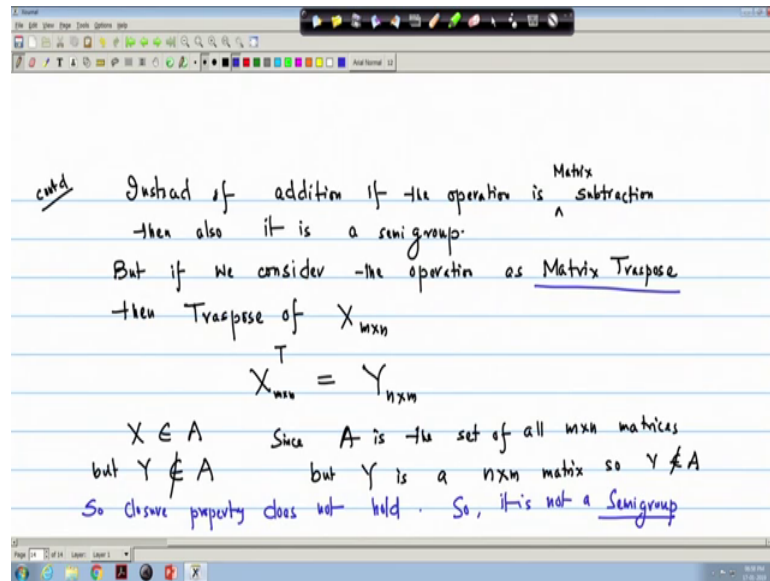 Journal
File Edit View Page Tools Options Help
Arial Normal 12
contd Instead of addition if the operation is Matrix ^ subtraction
then also it is a semi group.
But if we consider the operation as Matrix Traspose
then Traspose of X mxn
X mxn T = Y nxm
X ∈ A Since A is the set of all mxn matrices
but Y ∉ A but Y is a nxm matrix so Y ∉ A
So Closure property does not hold. So, it is not a Semigroup
Page 14 of 14 Layer: Layer 1